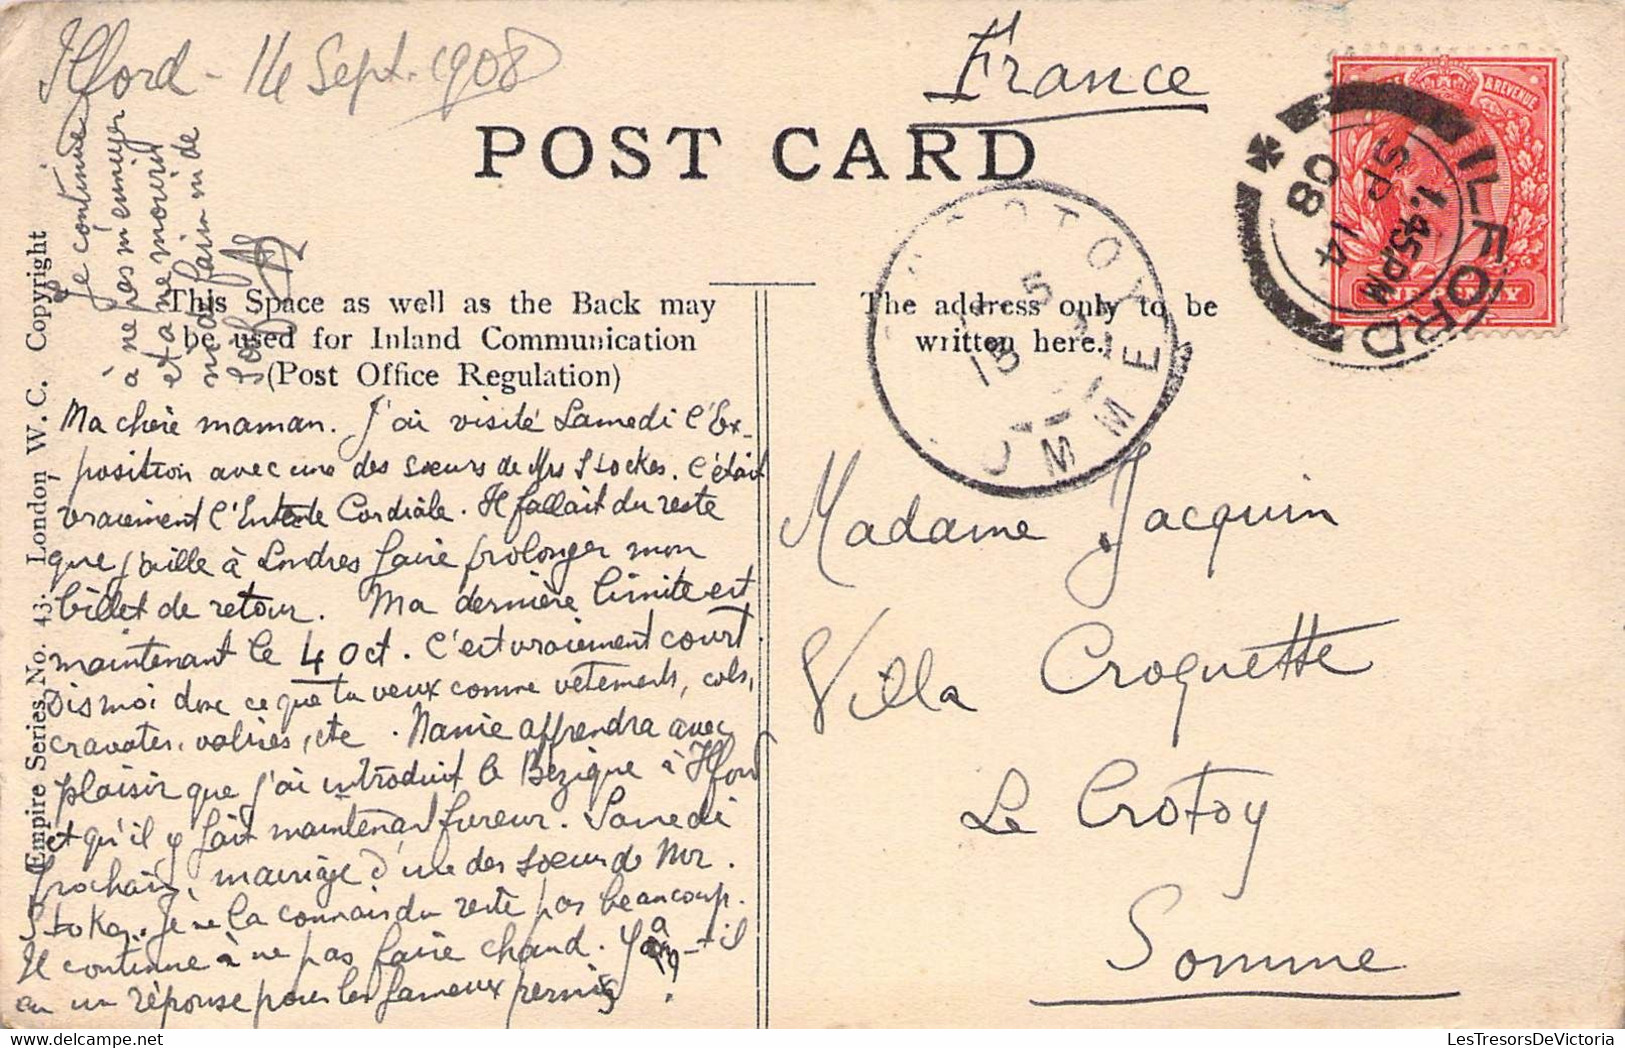 Ilford - 14 Sept. 1908
France
POST CARD
REVENUE
ONE PENNY
ILFORD
1.45PM
SP 14
08
CROTOY
SOMME
15
This Space as well as the Back may
be used for Inland Communication
(Post Office Regulation)
The address only to be
written here.
Empire Series No. 43. London W. C. Copyright
Ma chère maman. J'ai visité Samedi l'Ex-
position avec une des sœurs de Mrs Stockes. C'était
vraiement l'Entente Cordiale. Il fallait du reste
que j'aille à Londres faire prolonger mon
billet de retour. Ma dernière limite est
maintenant le 4 Oct. C'est vraiement court.
Dis moi donc ce que tu veux comme vêtements, cols,
cravates, valises, etc. Mamie apprendra avec
plaisir que j'ai introduit le Bezigue à Ilford
et qu'il y fait maintenant fureur. Samedi
prochain, mariage d'une des sœurs de Mr.
Stokes. Je ne la connais du reste pas beaucoup.
Il continue à ne pas faire chaud. Y a-t-il
eu un réponse pour les fameux permis ?
Je continue
à ne pas m'ennuyer
et à ne mourir
ni de faim ni de
soif
Madame Jacquin
Villa Croquette
Le Crotoy
Somme
LesTresorsDeVictoria